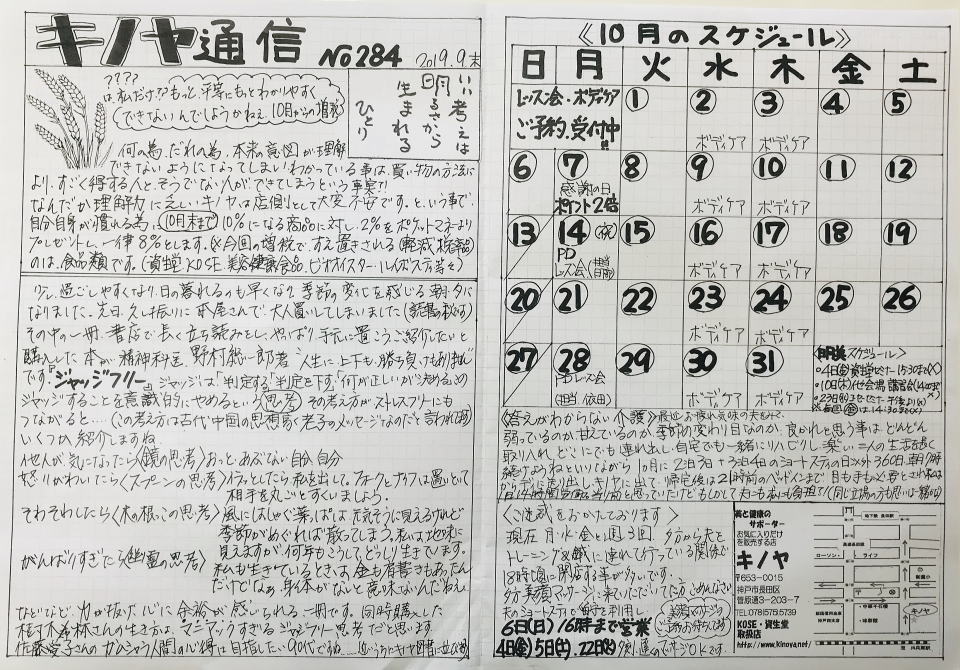 キノヤ通信 No284 2019.9末
いい考えは
明るさから
生まれる
ひとり
????
は私だけ??もっと平等にもっとわかりやすく
できないんでしょうかねぇ、10月からの増税
何の為、だれの為、本来の意図が理解
できないようになってしまいわかっている事は、買い物の方法に
より、すごく得する人と、そうでない人ができてしまうという事実?!
なんだか理解力に乏しいキノヤは店側として大変不安です。という事で
自分自身が慣れる為に10月末まで10%になる商品に対し、2%をポケットマネーより
プレゼントし、一律8%とします。(※今回の増税で、すえ置きされる(軽減税率品)
のは、食品類です。(資生堂、KOSE、美容健康食品、ビオオイスター、ルイボスティ等々)
少し過ごしやすくなり、日の暮れるのも早くなり、季節の変化を感じる朝・夕に
なりました。先日、久し振りに本屋さんで、大人買いしてしまいました(読書の秋です)
その中の一冊、書店で長く立ち読みをし、やっぱり手元に置こう、ご紹介したいと
購入した本が、精神科医 野村総一郎著 人生に上下も勝ち負けもありません
です。『ジャッジフリー』ジャッジは「判定する」「判定を下す」「何が正しいか」決めること
ジャッジすることを意識的にやめるという思考 その考え方がストレスフリーにも
つながると…(この考え方は古代中国の思想家、老子のメッセージなのだと言われてます)
いくつか紹介しますね
他人が気になったら〈鏡の思考〉おっとあぶない自分、自分
怒りがわいたら〈スプーンの思考〉イラッとしたら私を出して。フォークとナイフは置といて
相手を丸ごとすくいましょう。
そわそわしたら〈木の根っこの思考〉風にはしゃぐ葉っぱは元気そうに見えるけれど
季節がめぐれば散ってしまう。私は地味に
見えますが何年もこうしてどっしり生きています。
がんばりすぎたら〈幽霊の思考〉私も生きているときは、お金も肩書きもあったん
だけどなぁ、身体がないと意味ないんだねぇ
ひとなどなど力が抜け、心に余裕が感じられる一冊です。同時購入した
樹木希林さんの生き方は、マニアックすぎるジャッジフリー思考だと思います
《10月のスケジュール》
日 月 火 水 木 金 土
レッスン会・ボディケア
ご予約受付中!!
1 2 3 4 5
ボディケア ボディケア
6 7 8 9 10 11 12
感謝の日
ポイント2倍
ボディケア ボディケア
13 14(祝) 15 16 17 18 19
PD
レッスン会
ボディケア ボディケア
20 21 22 23 24 25 26
ボディケア ボディケア
27 28 29 30 31
PDレッスン会
ボディケア ボディケア
〈明美スケジュール〉
《答えがわからない介護》最近お疲れ気味の夫をみて、
弱っているのか、甘えているのか、季節の変わり目なのか、良かれと思う事はどんどん
取り入れ、どこにでも連れ出し、自宅でも一緒にリハビリし、楽しい二人の生活を長く
続けようねといいながら 10月に2泊3日+3泊4日のショートステイの日以外360日、朝9時
《ご迷惑をおかけております》
現在 月・水・金と週3回、夕方から夫を
トレーニング&鍼に連れて行っている関係で
18時頃に閉店する事が多いです。
6日(日)16時まで営業
4日(金)5日(土)、22日(火)
美と健康の
サポーター
お気に入りだけ
を販売する店
キノヤ
〒653-0015
神戸市長田区
菅原通3-203-7
TEL 078(575)5739
KOSE・資生堂
取扱店
http://www.kinoya.net/
地下鉄 長田駅
高速長田駅
ローソン
ライフ
キノヤ